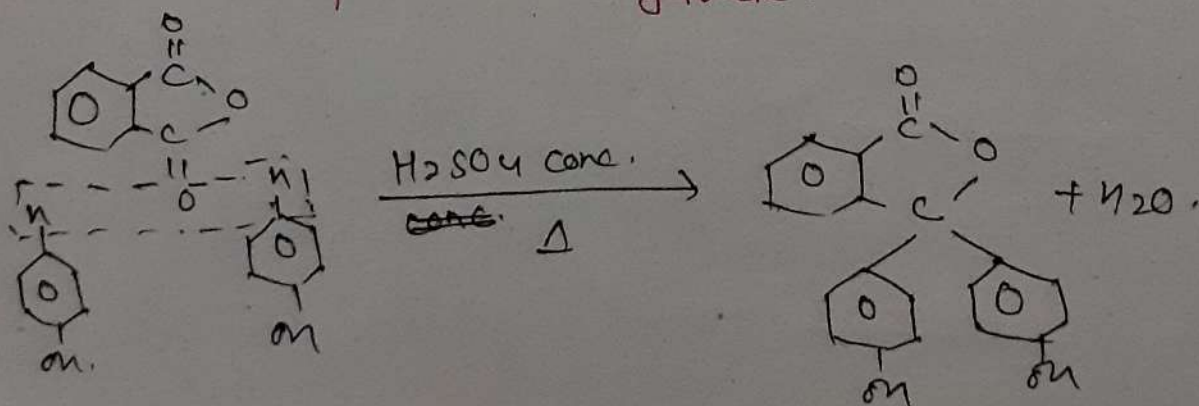 O
C
O
C
O
H
H
OH.
OH
H2SO4 conc.
Δ
O
C
O
C
OH
OH
+ H2O.